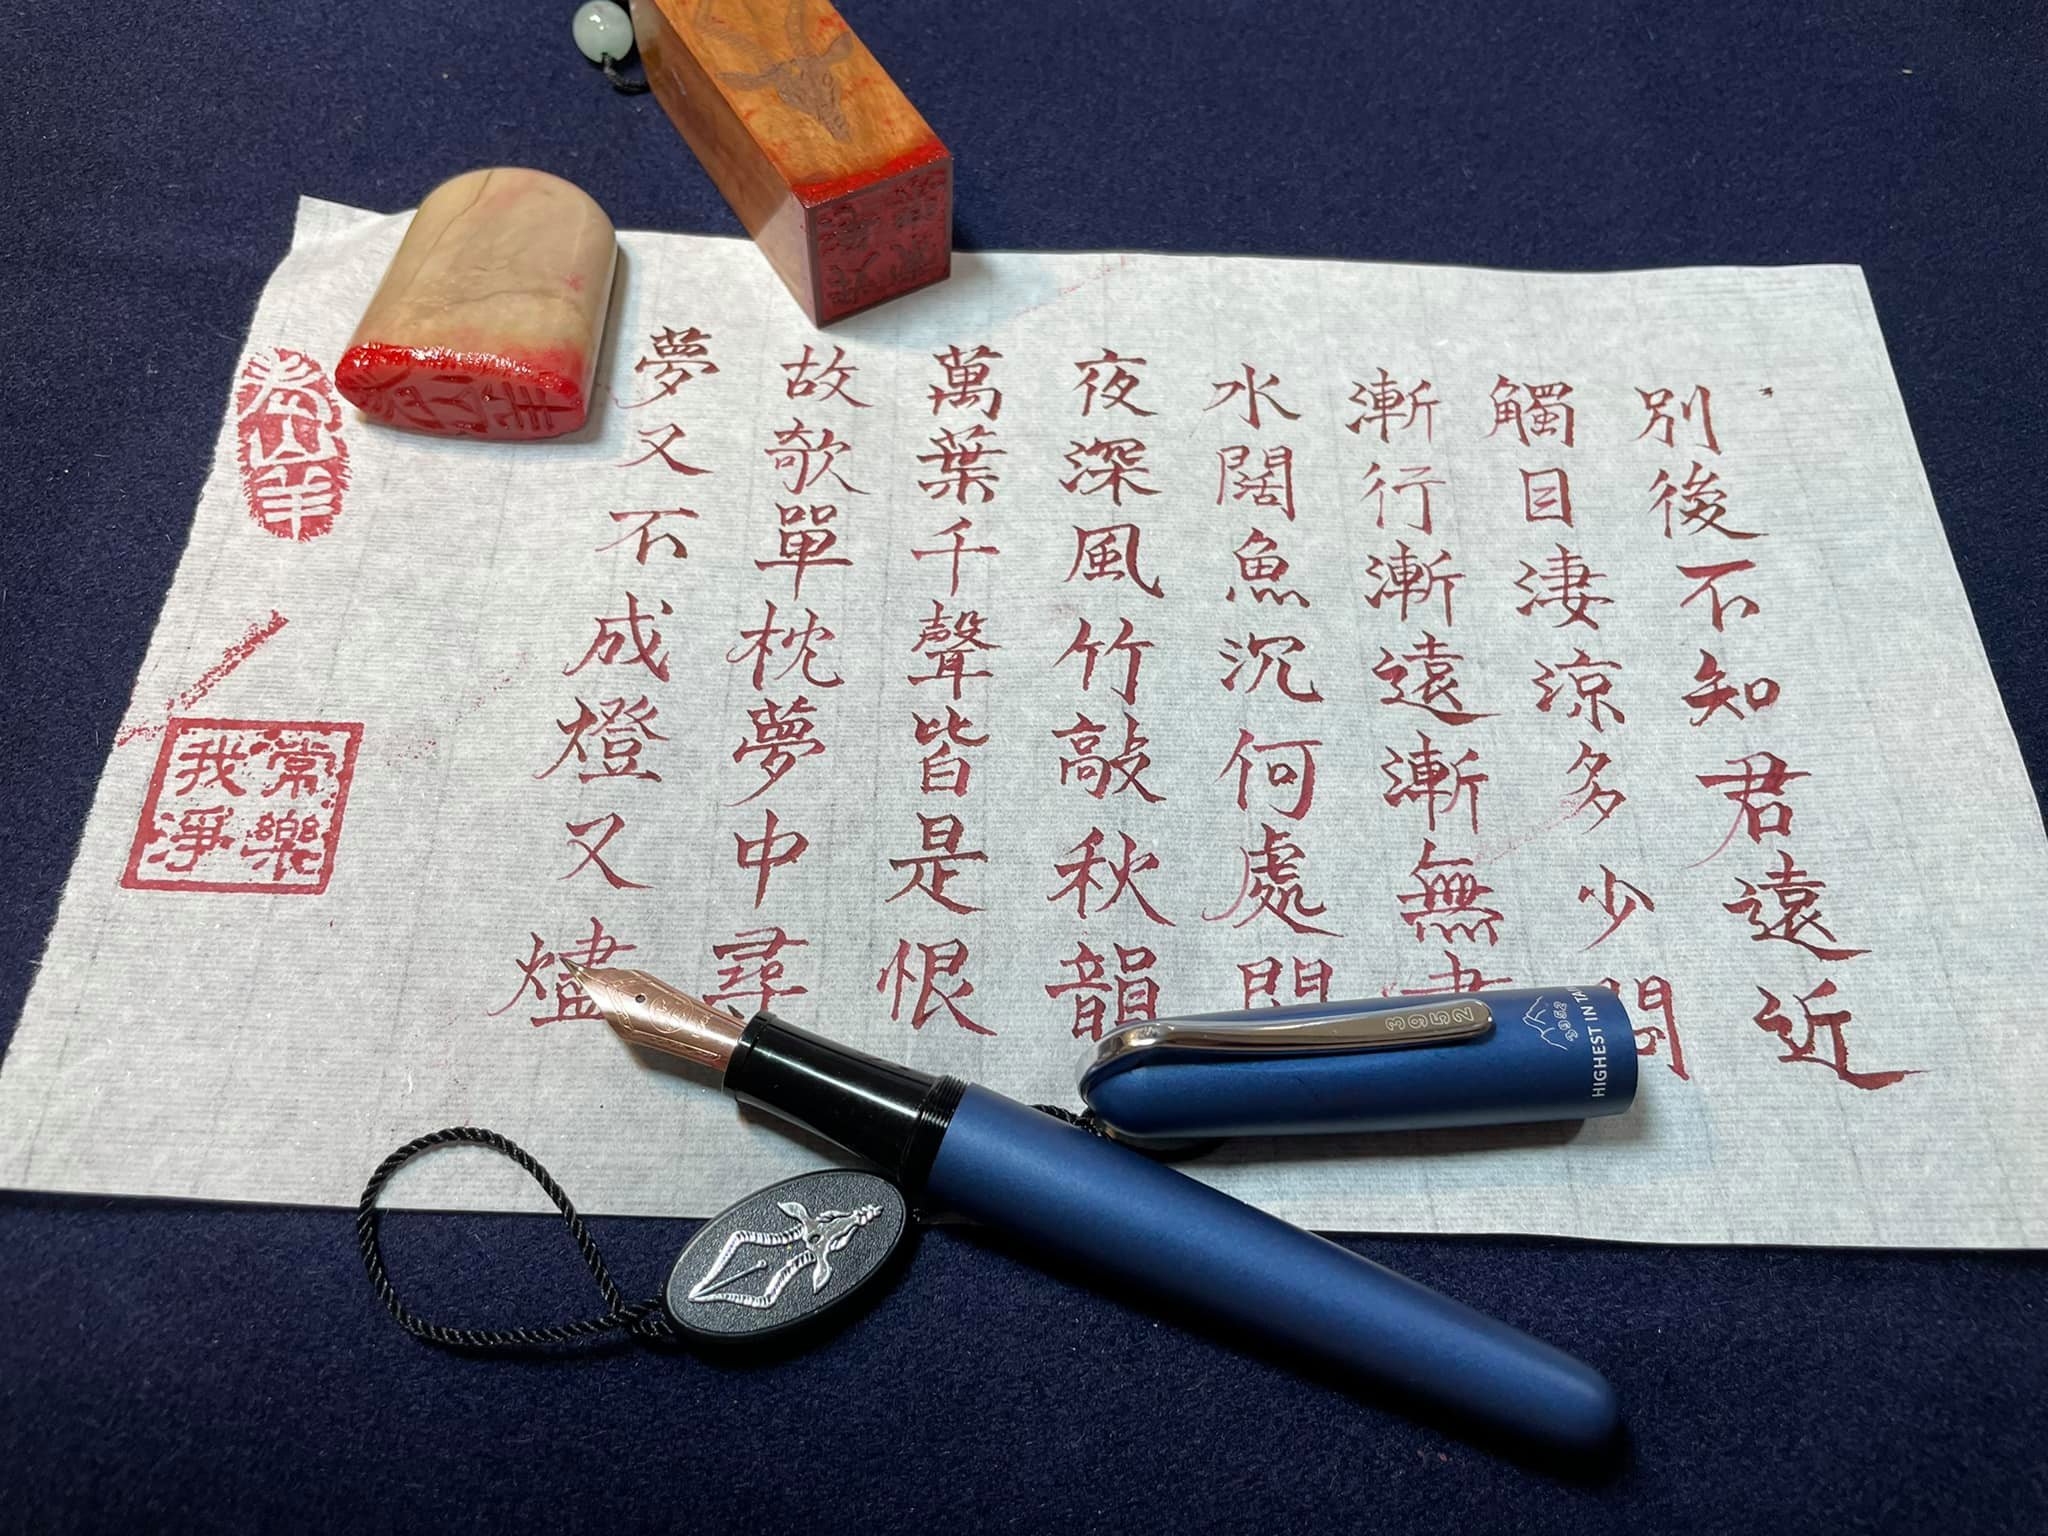 別後不知君遠近
觸目淒涼多少悶
漸行漸遠漸無書
水闊魚沉何處問
夜深風竹敲秋韻
萬葉千聲皆是恨
故欹單枕夢中尋
夢又不成燈又燼
老山羊
常樂
我淨
3952
3952
HIGHEST IN TAI